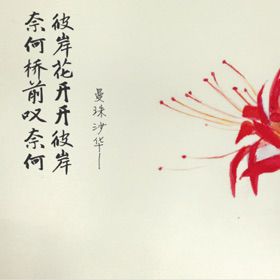 彼岸花开开彼岸
奈何桥前叹奈何
曼珠沙华